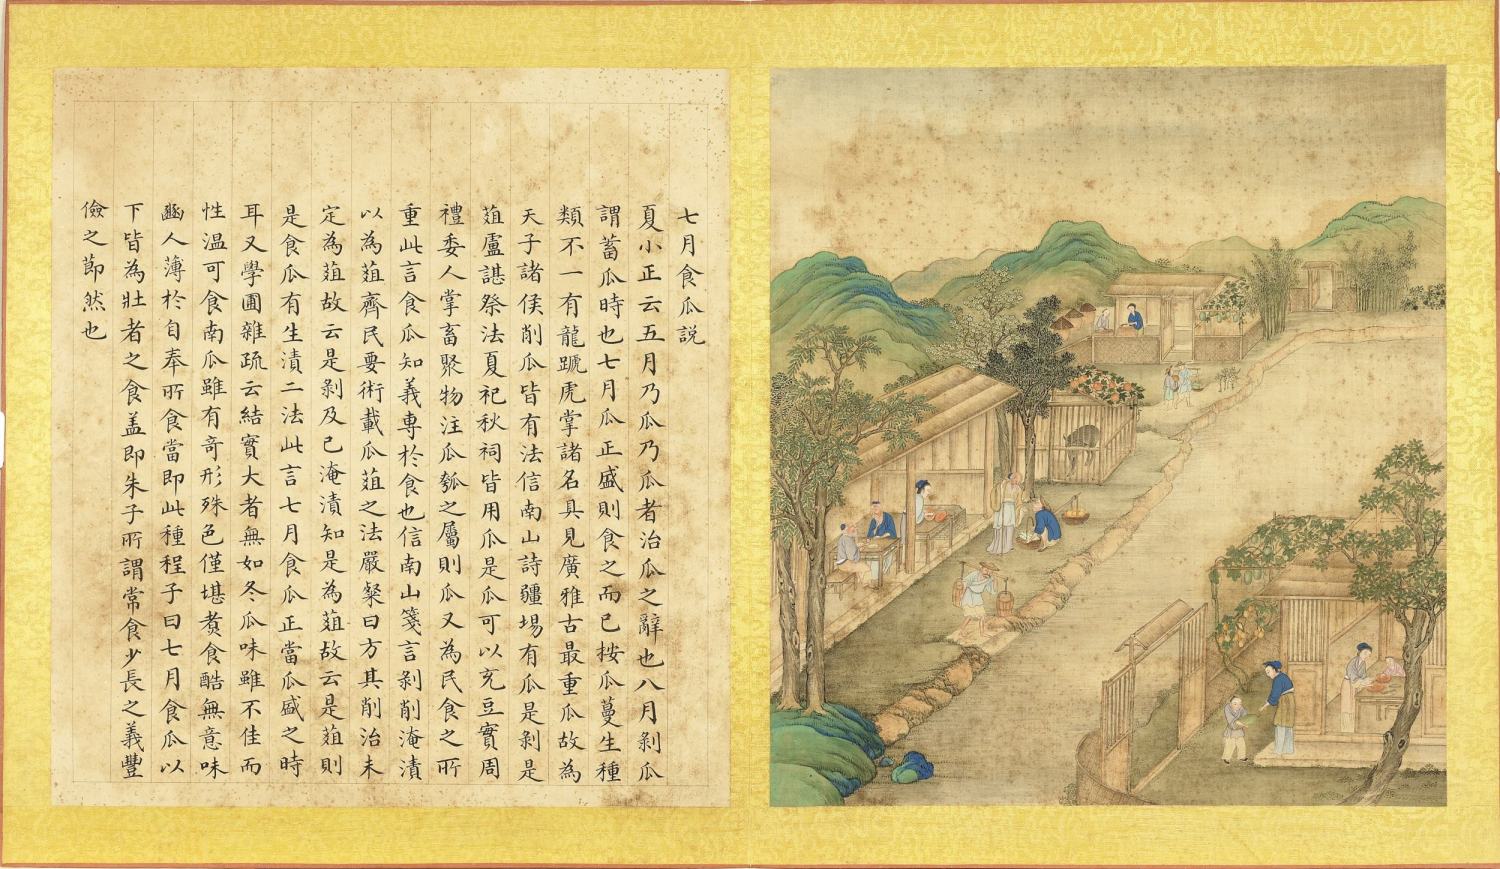 七月食瓜說
夏小正云五月乃瓜乃瓜者治瓜之辭也八月剝瓜
謂蓄瓜時也七月瓜正盛則食之而已按瓜蔓生種
類不一有龍蹏虎掌諸名具見廣雅古最重瓜故為
天子諸侯削瓜皆有法信南山詩疆埸有瓜是剝是
菹盧諶祭法夏祀秋祠皆用瓜是瓜可以充豆實周
禮委人掌畜聚物注瓜瓠之屬則瓜又為民食之所
重此言食瓜知義專於食也信南山箋言剝削淹漬
以為菹齊民要術載瓜菹之法嚴粲曰方其削治未
定為菹故云是剝及已淹漬知是為菹故云是菹則
是食瓜有生漬二法此言七月食瓜正當瓜盛之時
耳又學圃雜疏云結實大者無如冬瓜味雖不佳而
性溫可食南瓜雖有奇形殊色僅堪煑食酷無意味
豳人薄於自奉所食當即此種程子曰七月食瓜以
下皆為壯者之食盖即朱子所謂常食少長之義豐
儉之節然也